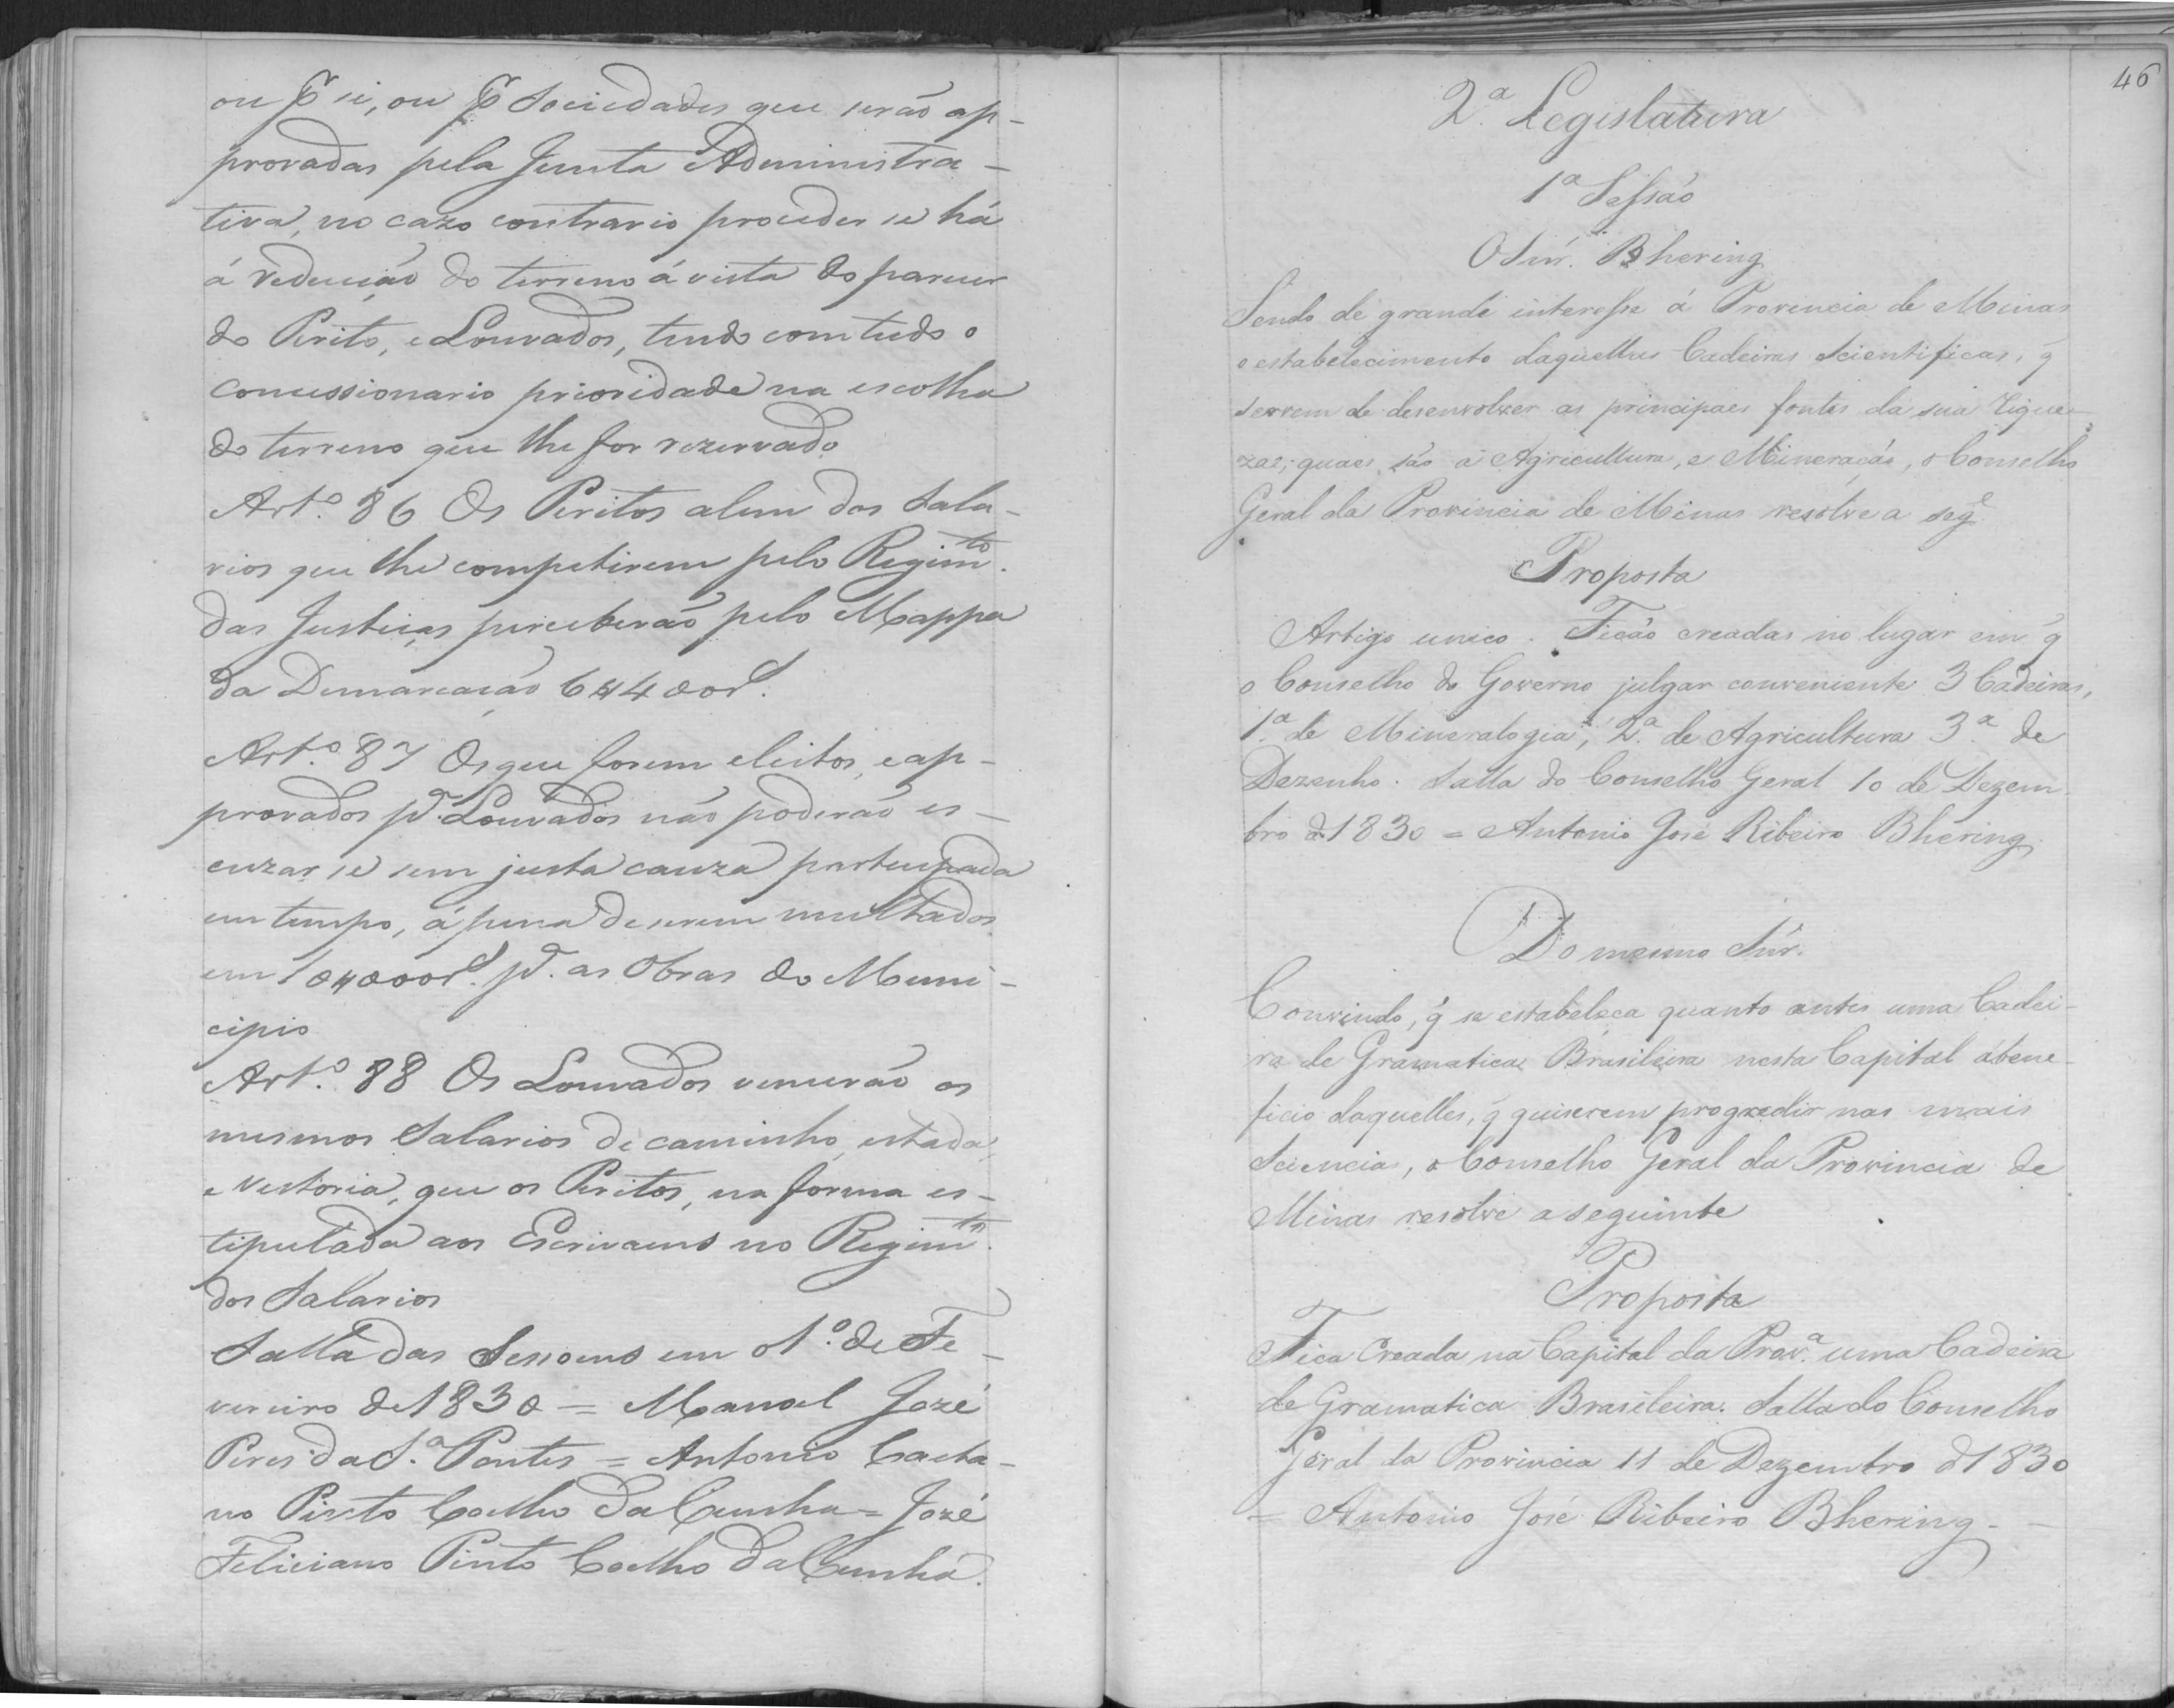 ou p.r si, ou p.r Sociedades que serão ap-
provadas pela Junta Administra-
tiva, no cazo contrario proceder se há
á reducção do terreno á vista do parecer
do Perito, e Louvados, tendo com tudo o
concessionario prioridade na escolha
do terreno que lhe for rezervado
Art.º 86 Os Peritos alem dos Sala-
rios que lhe competirem pelo Regim.to
das Justiças perceberão pelo Mappa
da Demarcação 6$400r.s
Art.º 87 Os que forem eleitos, e ap-
provados p.a Louvados não poderão es-
cuzar se sem justa cauza partecipada
em tempo, á pena de serem multados
em 10$000r.s p.a as Obras do Muni-
cipio
Art.º 88 Os Louvados vencerão os
mesmos Salarios de caminho, estada,
e vestoria, que os Peritos, na forma es-
tipulada aos Escrivaens no Regim.to
dos Salarios
Salla das Sessoens em 1.º de Fe-
vereiro de 1830 = Manoel Jozé
Pires da S.a Pontes = Antonio Caeta-
no Pinto Coelho da Cunha = Jozé
Feliciano Pinto Coelho da Cunha.
46
2.ª Legislatura
1ª Sessão
O Snr. Bhering
Sendo de grande interesse á Provincia de Minas
o estabelecimento daquellas Cadeiras Scientificas, q̃
servem de desenvolver as principaes fontes da sua rique-
zas; quaes são a Agricultura, e Mineração, o Conselho
Geral da Provincia de Minas resolve a seg.e
Proposta
Artigo unico. Ficão creadas no lugar em q̃
o Conselho do Governo julgar conveniente 3 Cadeiras,
1.ª de Mineralogia, 2.ª de Agricultura 3.ª de
Dezenho. Salla do Conselho Geral 10 de Dezem-
bro d 1830 = Antonio José Ribeiro Bhering
Do mesmo Snr.
Convindo, q̃ se estabeleça quanto antes uma Cadei-
ra de Gramatica Brasileira nesta Capital á bene-
ficio daquelles, q̃ quiserem progredir nas mais
Sciencias, o Conselho Geral da Provincia de
Minas resolve a seguinte
Proposta
Fica Creada na Capital da Prov.ª uma Cadeira
de Gramatica Brasileira. Salla do Conselho
Geral da Provincia 11 de Dezembro d 1830
= Antonio José Ribeiro Bhering -